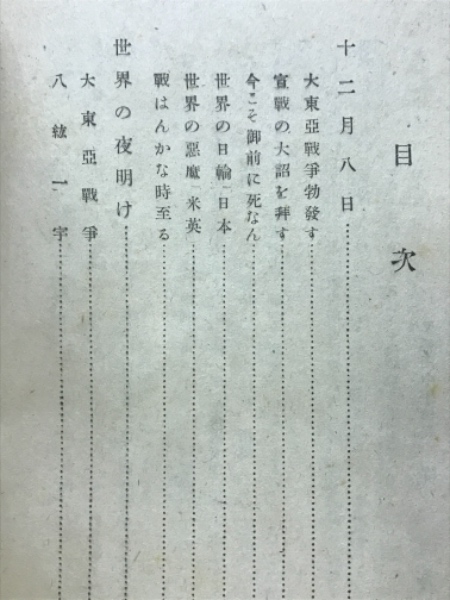 目次
十二月八日
大東亞戰爭勃發す
宣戰の大詔を拜す
今こそ御前に死なん
世界の日輪 日本
世界の惡魔 米英
戰はんかな時至る
世界の夜明け
大東亞戰爭
八紘一宇